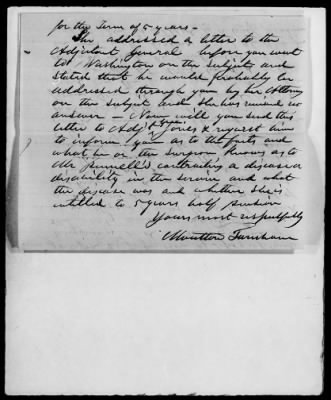 for the term of 5 years -
She addressed a letter to the
Adjutant General before you went
to Washington on the subject and
stated that he would probably be
addressed through you by her Attorney
on the subject and she has received no
answer - Now will you send this
letter to Adjt Genl Jones & request him
to inform you as to the facts and
what he or the surgeon knows as to
Mr Bunnell's contracting a disease or
disability in the service and what
the disease was and whether she is
intitled to 5 years half pension
Yours most respectfully
Moulton Farnham